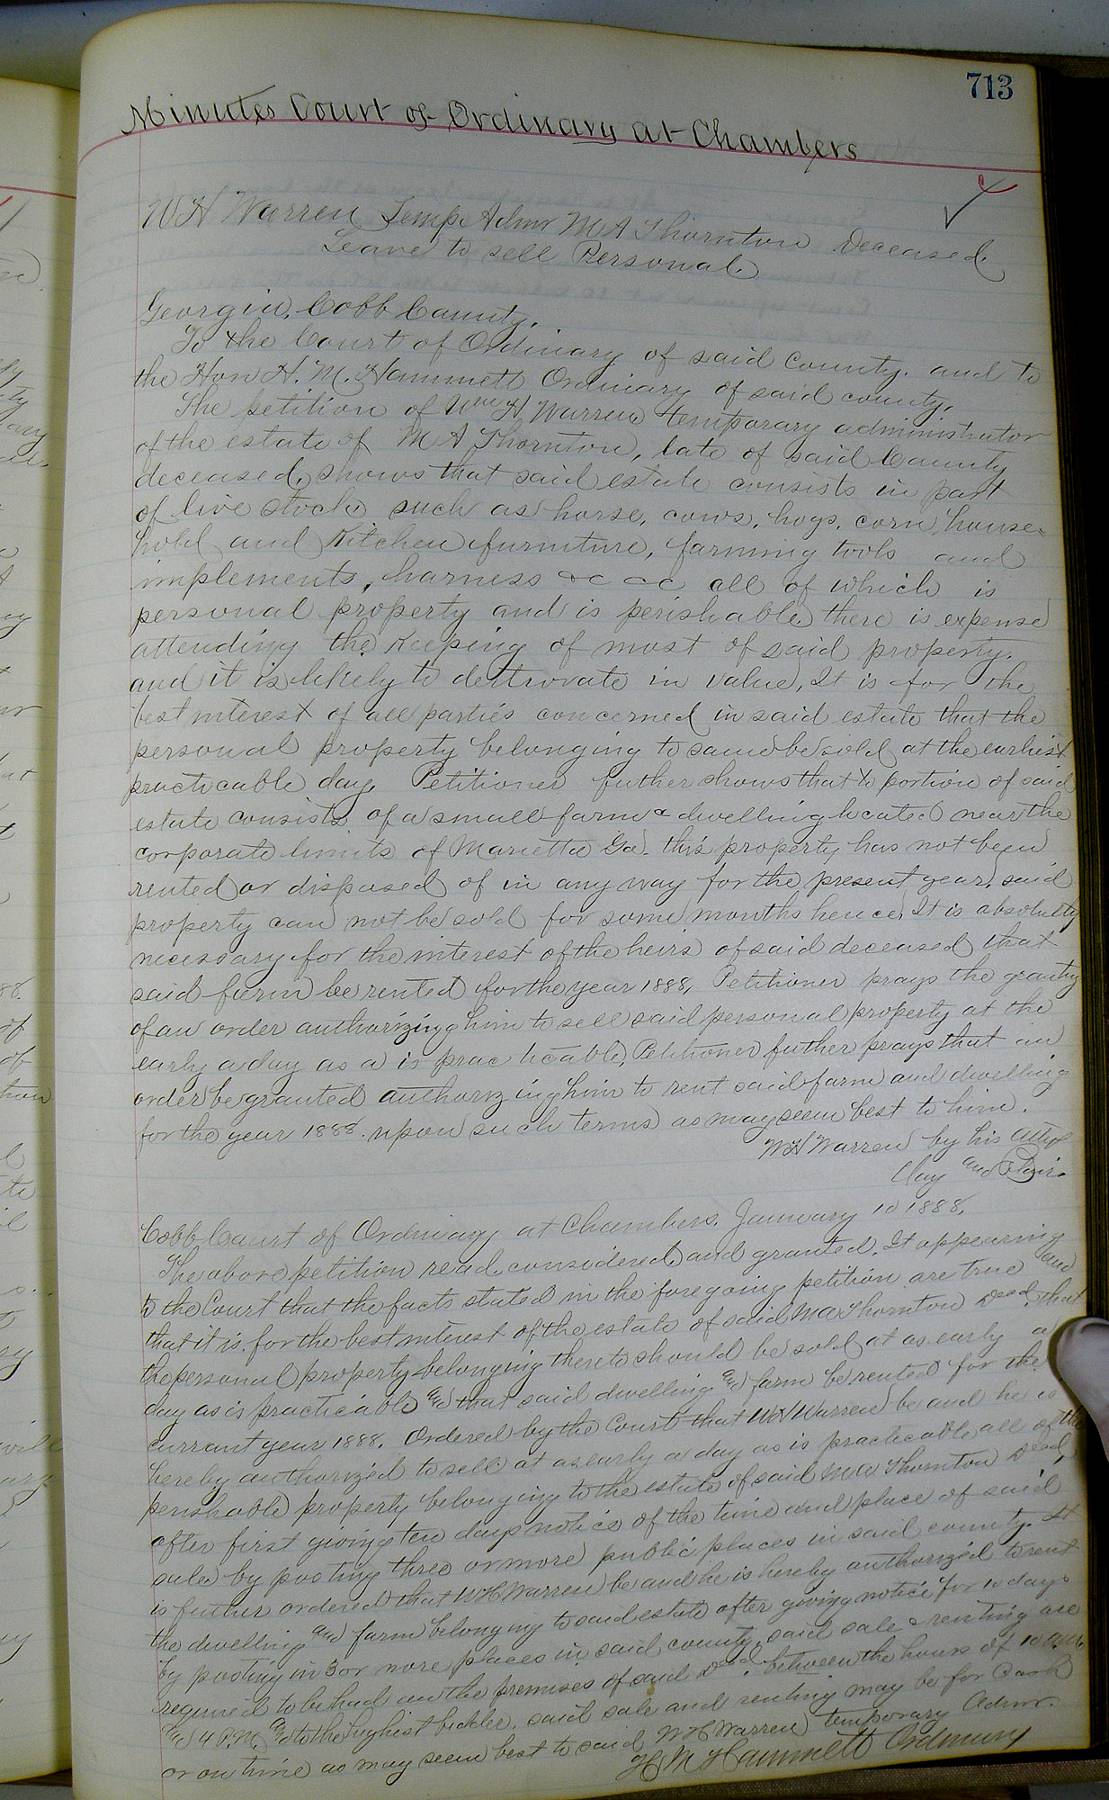 713
Minutes Court of Ordinary at Chambers
W H Warren Temp. Admr M A Thornton Deceased
Leave to sell Personal
Georgia, Cobb County.
To the Court of Ordinary of said County. and to
the Hon H. M. Hammett Ordinary of said county.
The petition of Wm H Warren temporary administrator
of the estate of M A Thornton, late of said County
deceased, shows that said estate consists in part
of live stock such as horse, cows, hogs, corn house-
hold and Kitchen furniture, farming tools and
implements, harness &c &c all of which is
personal property and is perishable there is expense
attending the Keeping of most of said property.
and it is likely to detriorate in value, It is for the
best interest of all parties concerned in said estate that the
personal property belonging to same be sold at the earliest
practicable day. Petitioner futher shows that a portion of said
estate consists of a small farm & dwelling located near the
corporate limits of Marietta Ga. this property has not been
rented or disposed of in any way for the present year, said
property can not be sold for some months hence, It is absolutly
necessary for the interest of the heirs of said deceased that
said farm be rented for the year 1888, Petitioner prays the granting
of an order authorizing him to sell said personal property at the
early a day as a is practicable, Petitioner futher prays that an
order be granted authorizing him to rent said farm and dwelling
for the year 1888. upon such terms as may seem best to him.
W H Warren by his Attys
Clay and Blair.
Cobb Court of Ordinary at Chambers, January 10 1888,
The above petition read considered and granted. It appearing
to the Court that the facts stated in the foregoing petition are true and
that it is for the best interest of the estate of said M A Thornton Decd, that
the personal property belonging thereto should be sold at as early a
day as is practicable and that said dwelling and farm be rented for the
currant year 1888. Ordered by the Court that W H Warren be and he is
hereby authorized to sell at as early a day as is practicable all of the
perishable property belonging to the estate of said M A Thornton Decd,
after first giving ten days notice of the time and place of said
sale by posting three or more public places in said county. It
is further ordered that W H Warren be and he is hereby authorized to rent
the dwelling and farm belonging to said estate after giving notice for 10 days
by posting in 3 or more places in said county, said sale & renting are
required to be had on the premises of said Decd. between the hours of 10 A.M.
and 4 P.M. and to the highest bidder. said sale and renting may be for Cash
or on time as may seem best to said W H Warren temporary Admr.
H M Hammett Ordinary